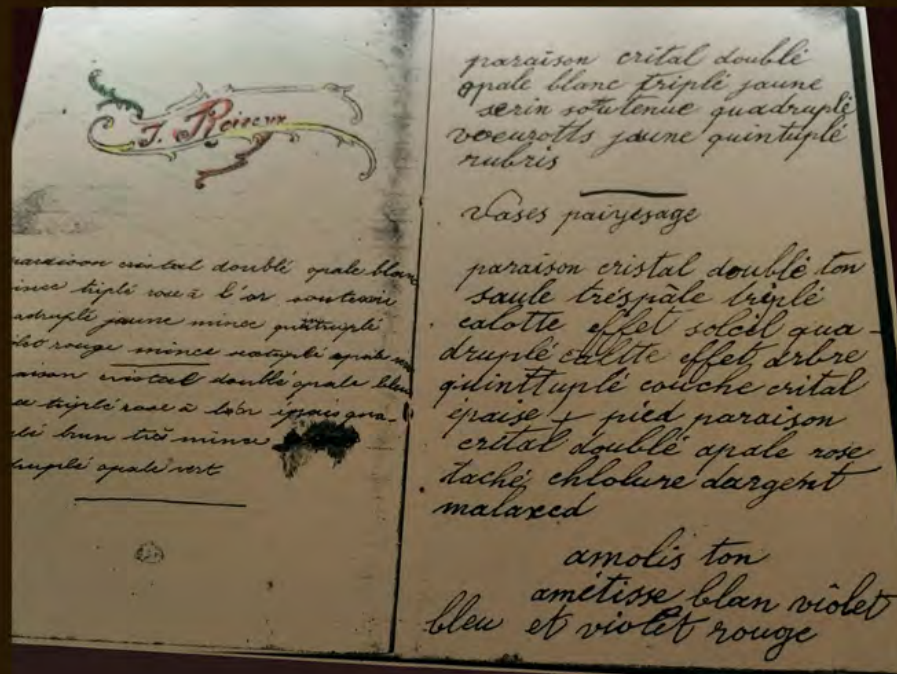 J. Roiseux
paraison cristal doublé opale blanc
mince triplé rose à l'or soutenue
quadruplé jaune mince
rouge mince opale
cristal doublé opale
triplé rose à lor épais qua-
brun trè mince
druplé opale vert
paraison crital doublé
opale blanc triplé jaune
serin soutenue quadruplé
jaune quintuplé
rubris
Vases paiyesage
paraison cristal doublé ton
saule tréspàle triplé
calotte effet soleil qua-
druplé caltte effet arbre
quinttuplé couche crital
épaise + pied paraison
crital doublé opale rose
taché chlolure dargent
malaxed
amolis ton
amétisse blan violet
bleu et violet rouge